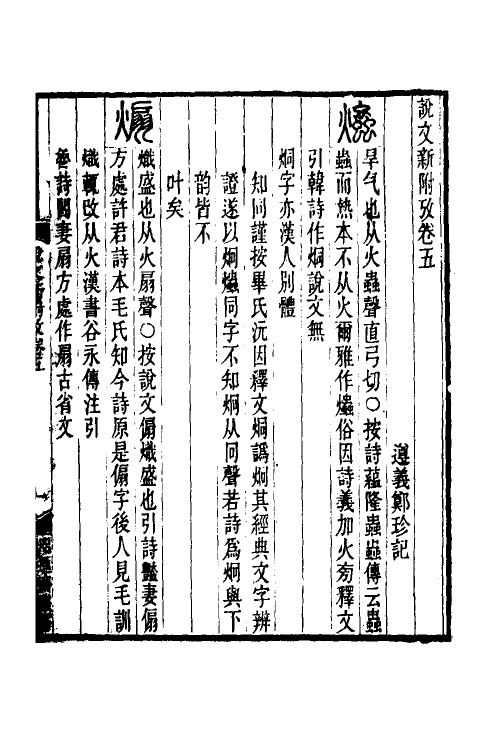 說文新附攷卷五
遵義鄭珍記
旱气也从火蟲聲直弓切〇按詩蘊隆蟲蟲傳云蟲
蟲而熱本不从火爾雅作爞俗因詩義加火㫄釋文
引韓詩作烔說文無
烔字亦漢人別體
知同謹按畢氏沅因釋文烔譌炯其經典文字辨
證遂以炯爞同字不知炯从冋聲若詩爲炯與下
韵皆不
叶矣
熾盛也从火扇聲〇按說文偏熾盛也引詩豔妻偏
方處許君詩本毛氏知今詩原是偏字後人見毛訓
熾輒改从火漢書谷永傳注引
魯詩閻妻扇方處作扇古省文